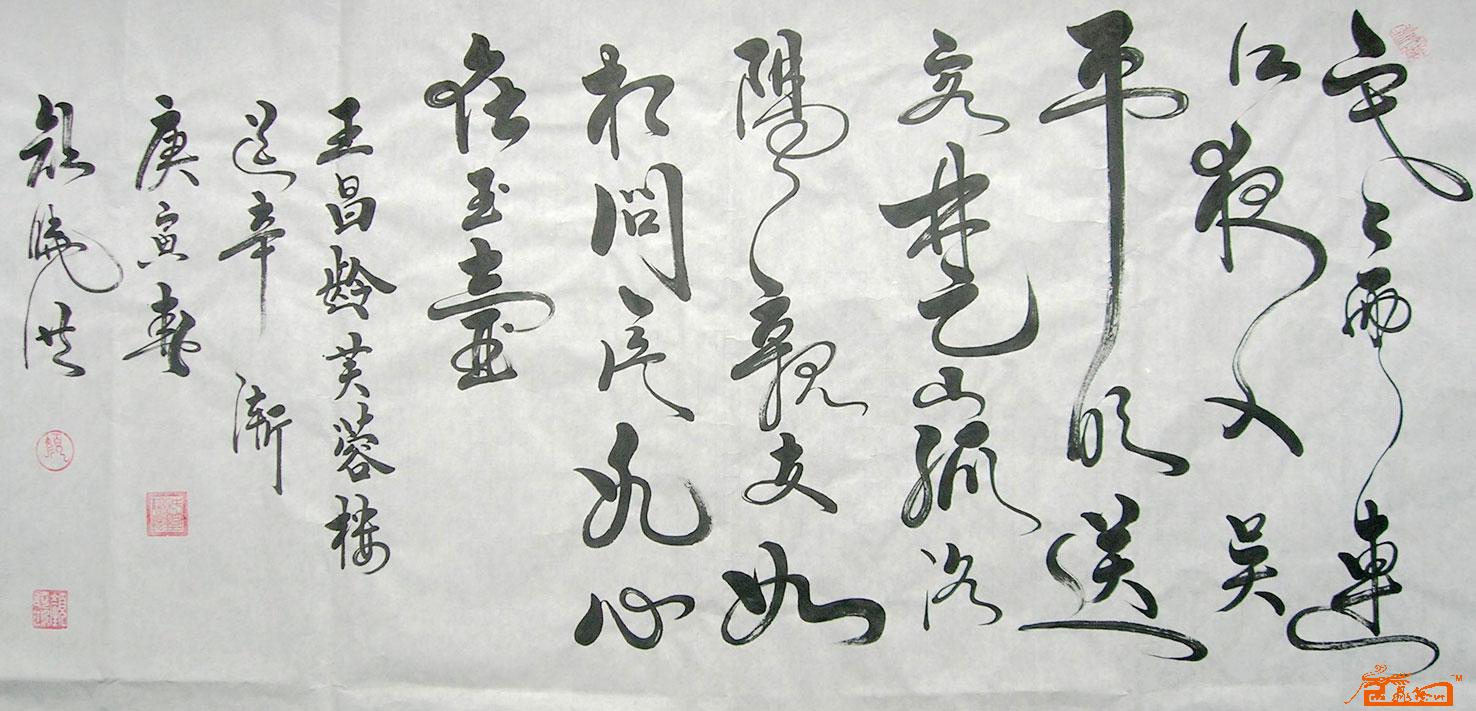 寒雨連
江夜入吳
平明送
客楚山孤洛
陽親友如
相問一片冰心
在玉壺
王昌齡芙蓉樓
送辛漸
庚寅春
顏曉洪